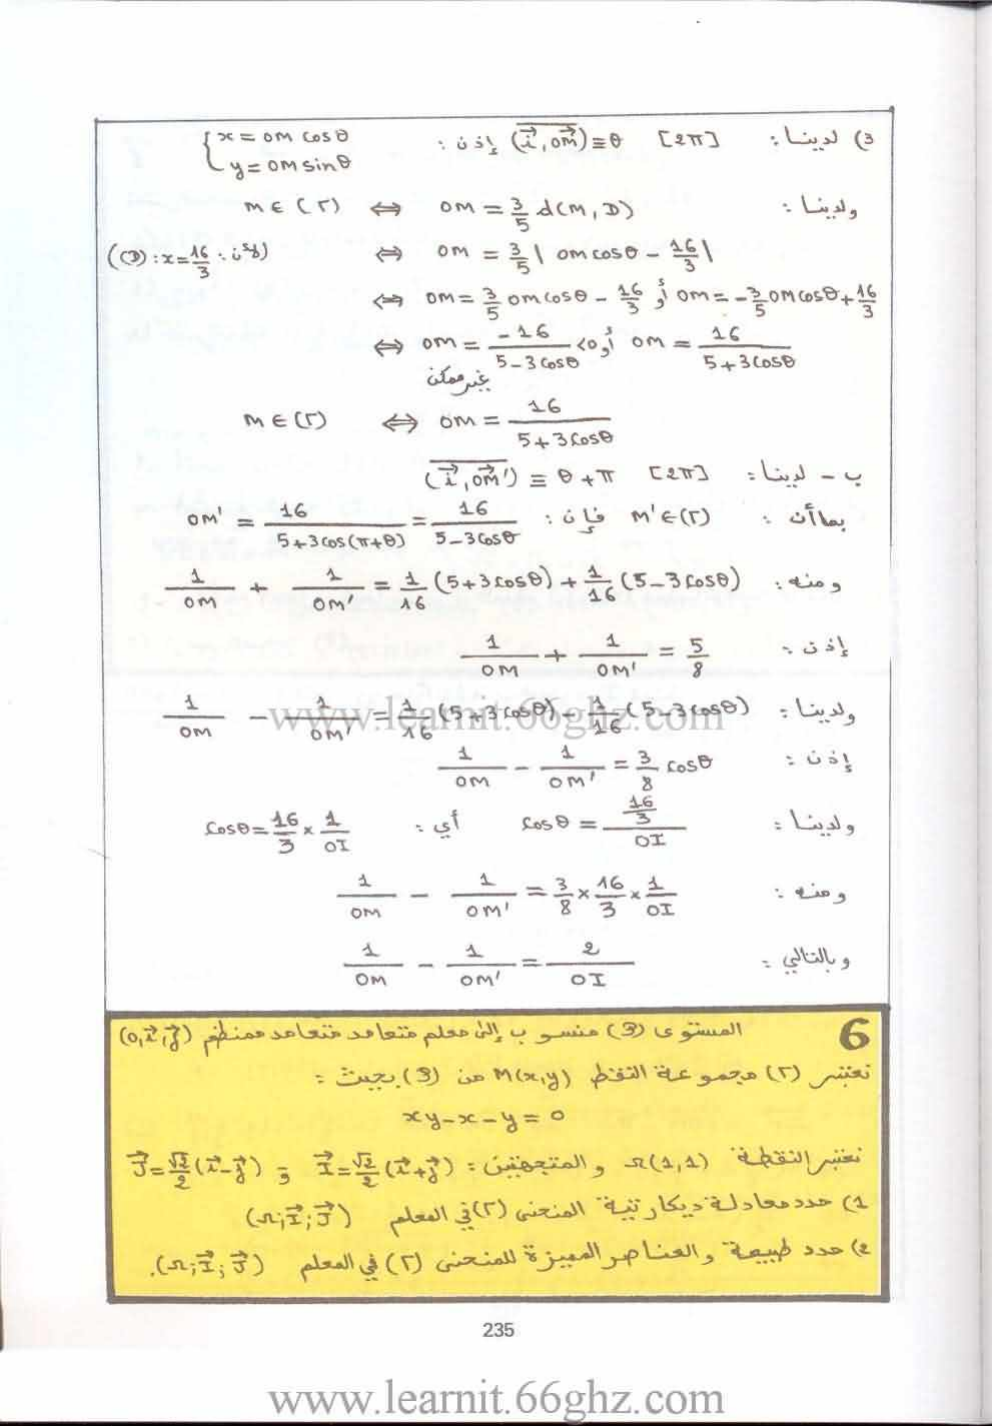 3) لدينا : (i⃗,OM⃗) ≡ θ [2π] إذن : { x = OM cosθ
y = OM sinθ
ولدينا : M ∈ (Γ) ⇔ OM = 3/5 d(M, D)
⇔ OM = 3/5 | OM cosθ - 16/3 | (لأن : (D) : x = 16/3)
⇔ OM = 3/5 OM cosθ - 16/3 أو OM = -3/5 OM cosθ + 16/3
⇔ OM = -16/(5-3cosθ) < 0 أو OM = 16/(5+3cosθ)
غير ممكن
M ∈ (Γ) ⇔ OM = 16/(5+3cosθ)
ب - لدينا : (i⃗,OM⃗') ≡ θ + π [2π]
بما أن : M' ∈ (Γ) فإن : OM' = 16/(5+3cos(π+θ)) = 16/(5-3cosθ)
ومنه : 1/OM + 1/OM' = 1/16 (5+3cosθ) + 1/16 (5-3cosθ)
إذن : 1/OM + 1/OM' = 5/8
ولدينا : 1/OM - 1/OM' = 1/16 (5+3cosθ) - 1/16 (5-3cosθ)
www.learnit.66ghz.com
إذن : 1/OM - 1/OM' = 3/8 cosθ
ولدينا : cosθ = (16/3)/OI أي : cosθ = 16/3 × 1/OI
ومنه : 1/OM - 1/OM' = 3/8 × 16/3 × 1/OI
وبالتالي : 1/OM - 1/OM' = 2/OI
6 المستوى (P) منسوب إلى معلم متعامد متعامد ممنظم (O,i⃗,j⃗)
نعتبر (Γ) مجموعة النقط M(x,y) من (P) بحيث :
xy - x - y = 0
نعتبر النقطة Ω(1,1) والمتجهتين : I⃗ = √2/2 (i⃗+j⃗) و J⃗ = √2/2 (i⃗-j⃗)
1) حدد معادلة ديكارتية المنحنى (Γ) في المعلم (Ω; I⃗; J⃗)
2) حدد طبيعة والعناصر المميزة للمنحنى (Γ) في المعلم (Ω; I⃗; J⃗).
235
www.learnit.66ghz.com